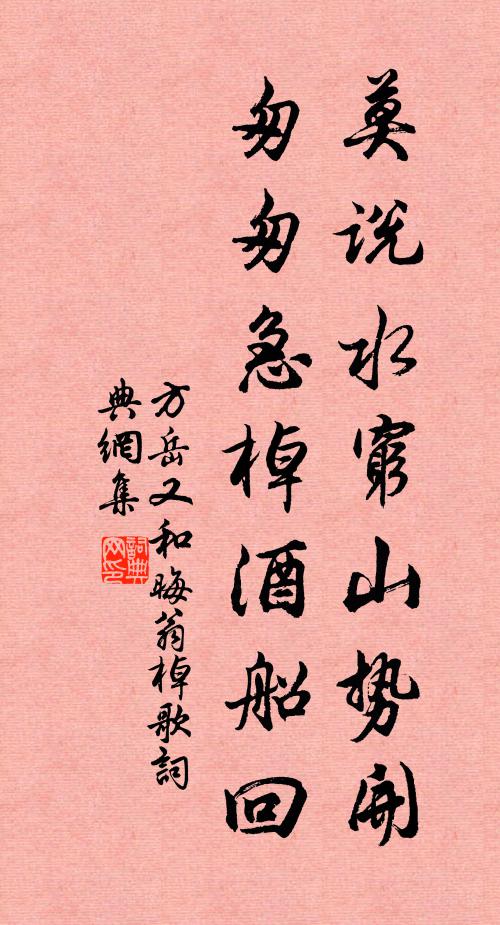 莫说水穷山势开
匆匆急棹酒船回
方岳又和晦翁棹歌詞
典網集
詞典網印